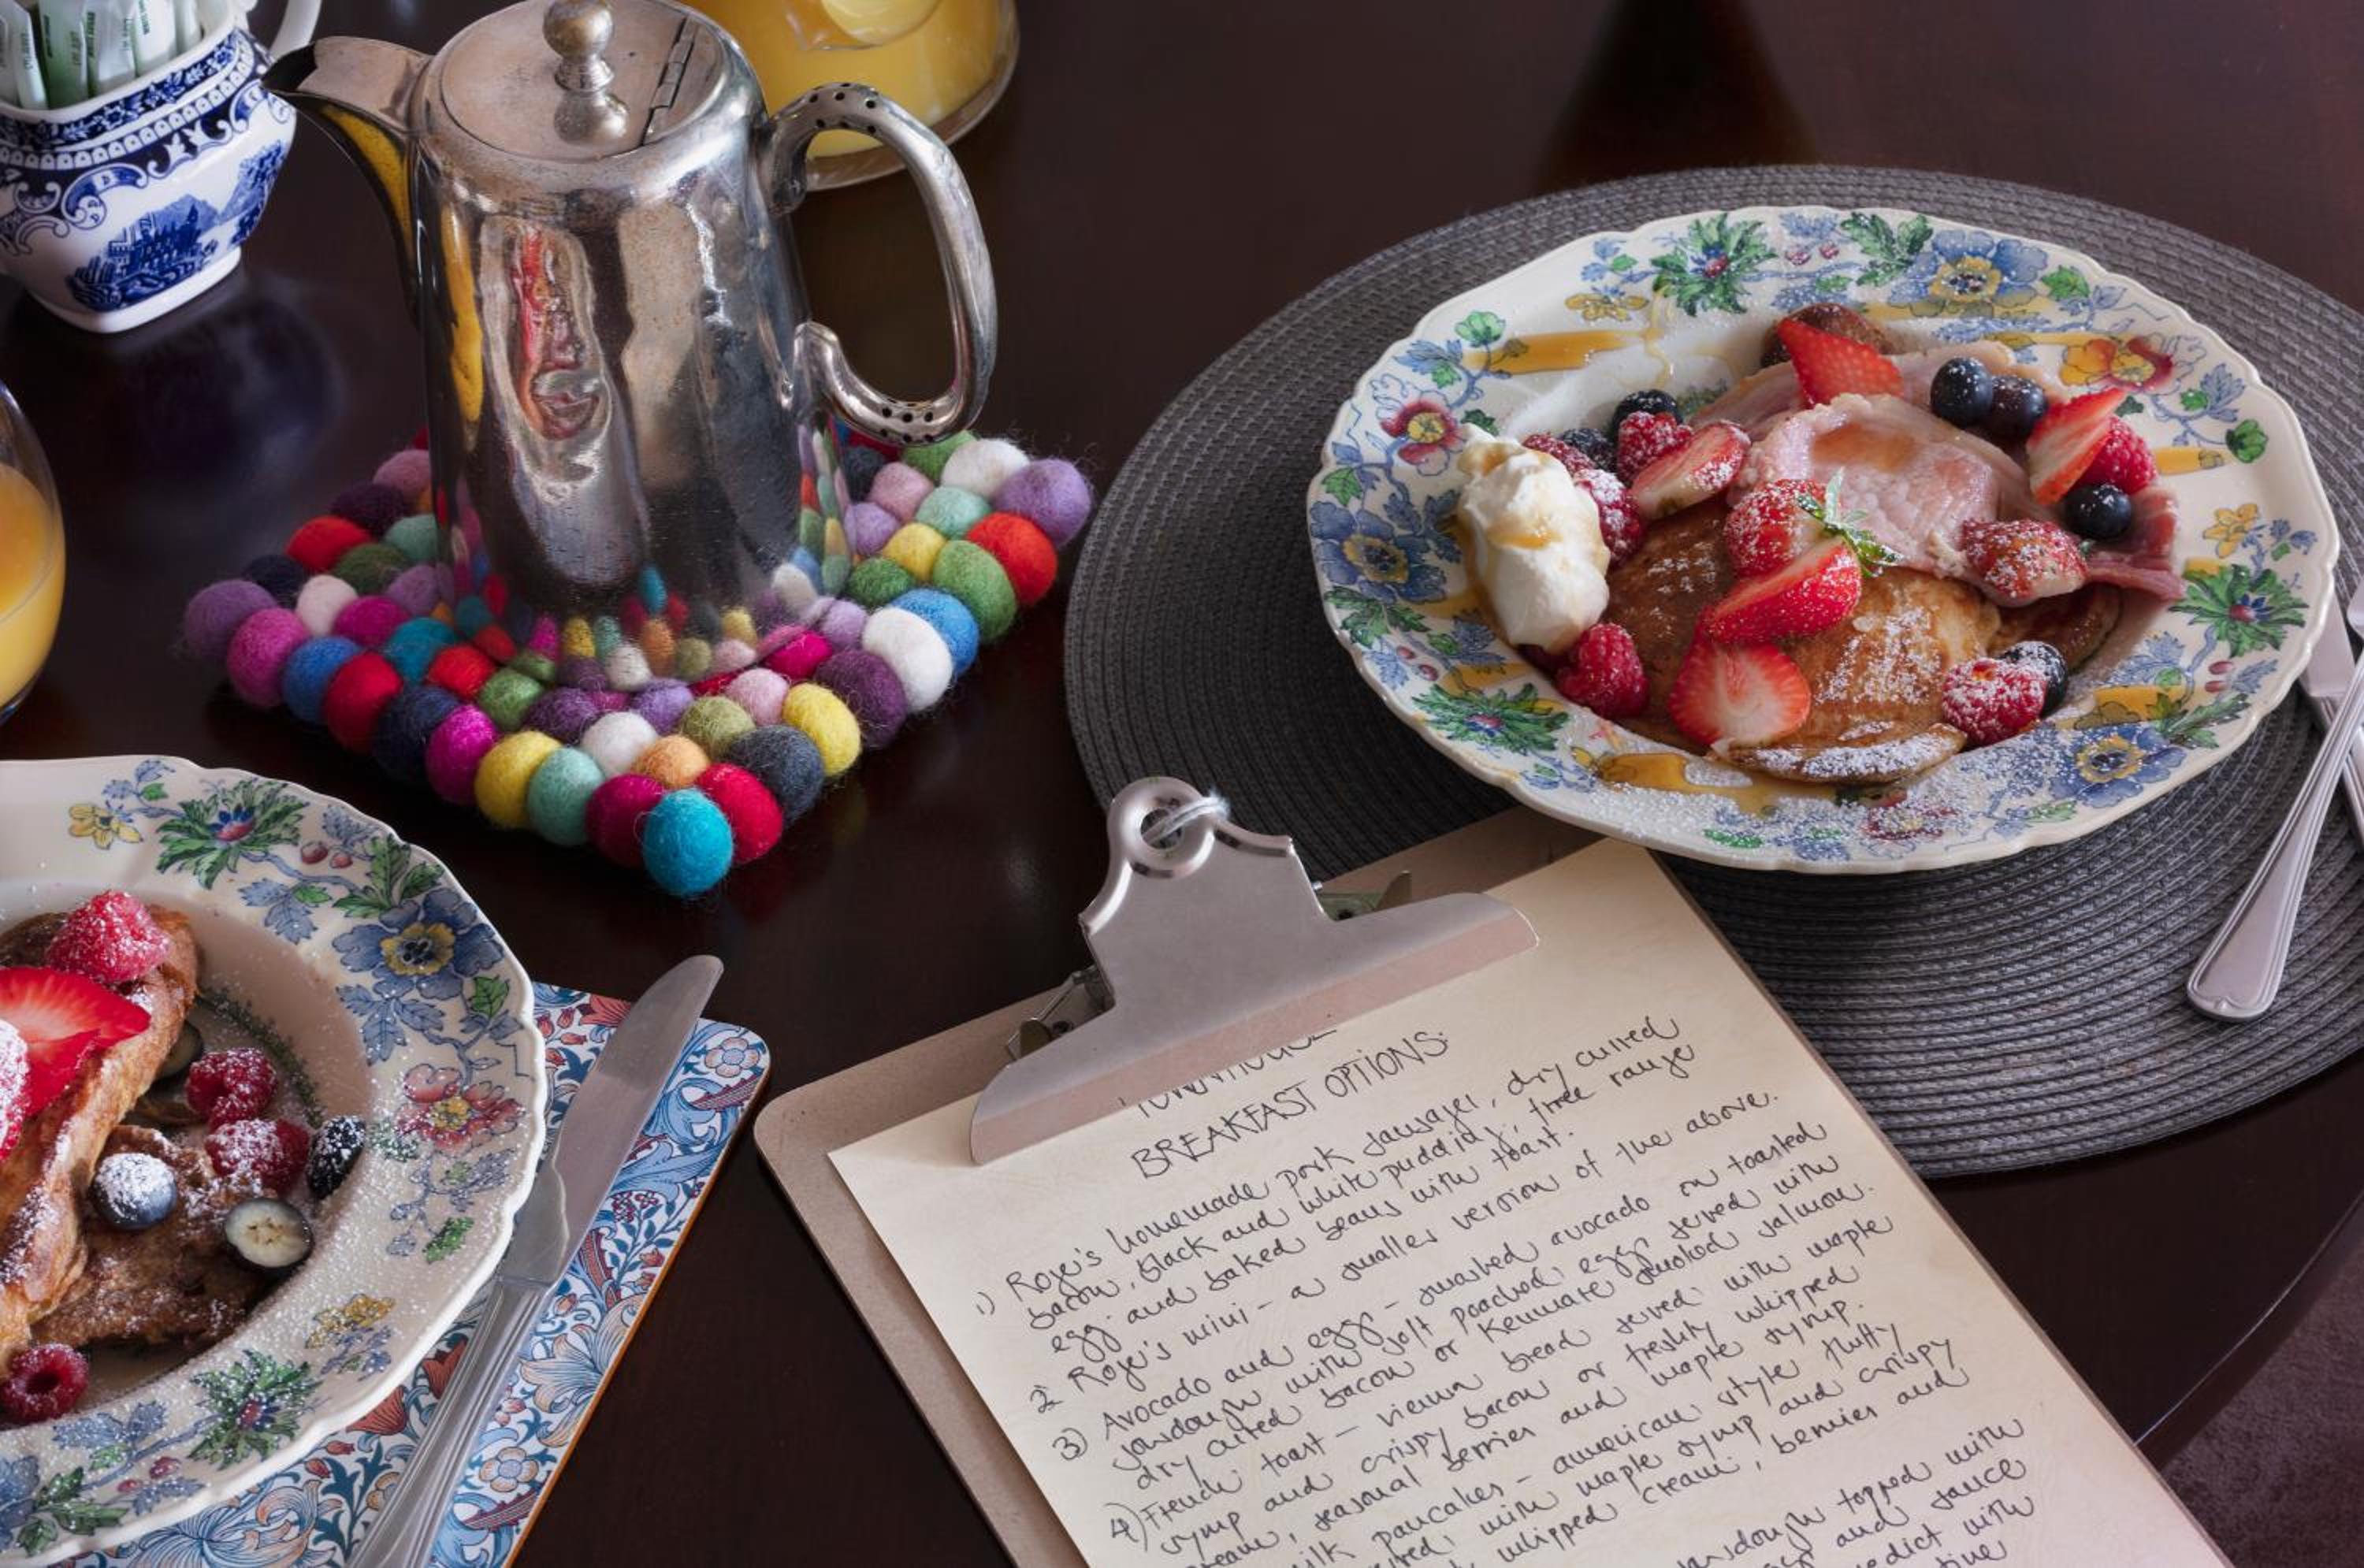 TOWNHOUSE
BREAKFAST OPTIONS:
1) Roze's homemade pork sausages, dry cured
bacon, black and white pudding, free range
egg and baked beans with toast.
2 Roze's mini - a smaller version of the above.
3) Avocado and egg - smashed avocado on toasted
sourdough with soft poached eggs served with
dry cured bacon or Kenmare smoked salmon.
4) French toast - vienna bread served with maple
syrup and crispy bacon or freshly whipped
cream, seasonal berries and maple syrup.
pancakes - american style fluffy
with maple syrup and crispy
whipped cream, berries and
sourdough topped with
and sauce
with